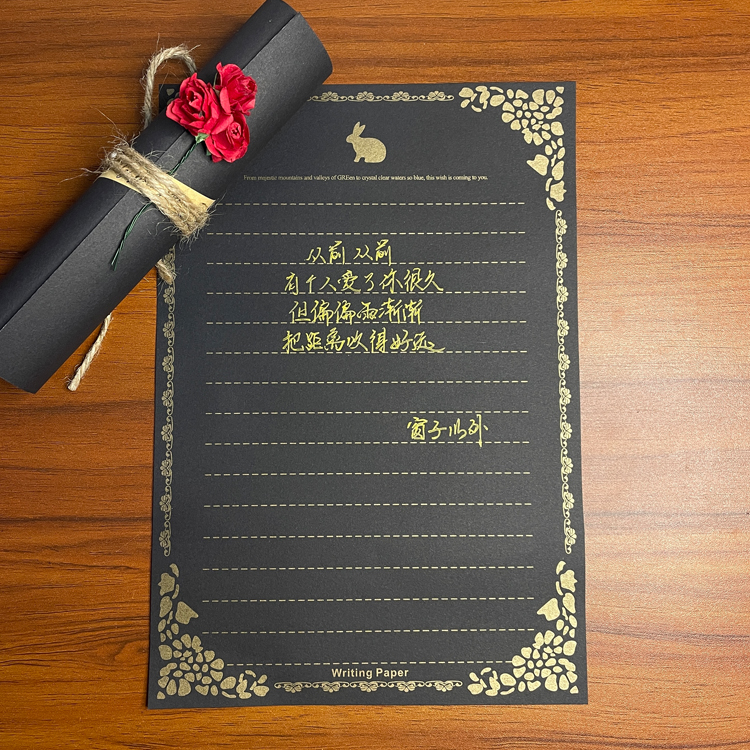 From majestic mountains and valleys of GREen to crystal clear waters so blue, this wish is coming to you.
从前 从前
有个人爱了你很久
但偏偏雨渐渐
把距离吹得好远
窗子以外
Writing Paper